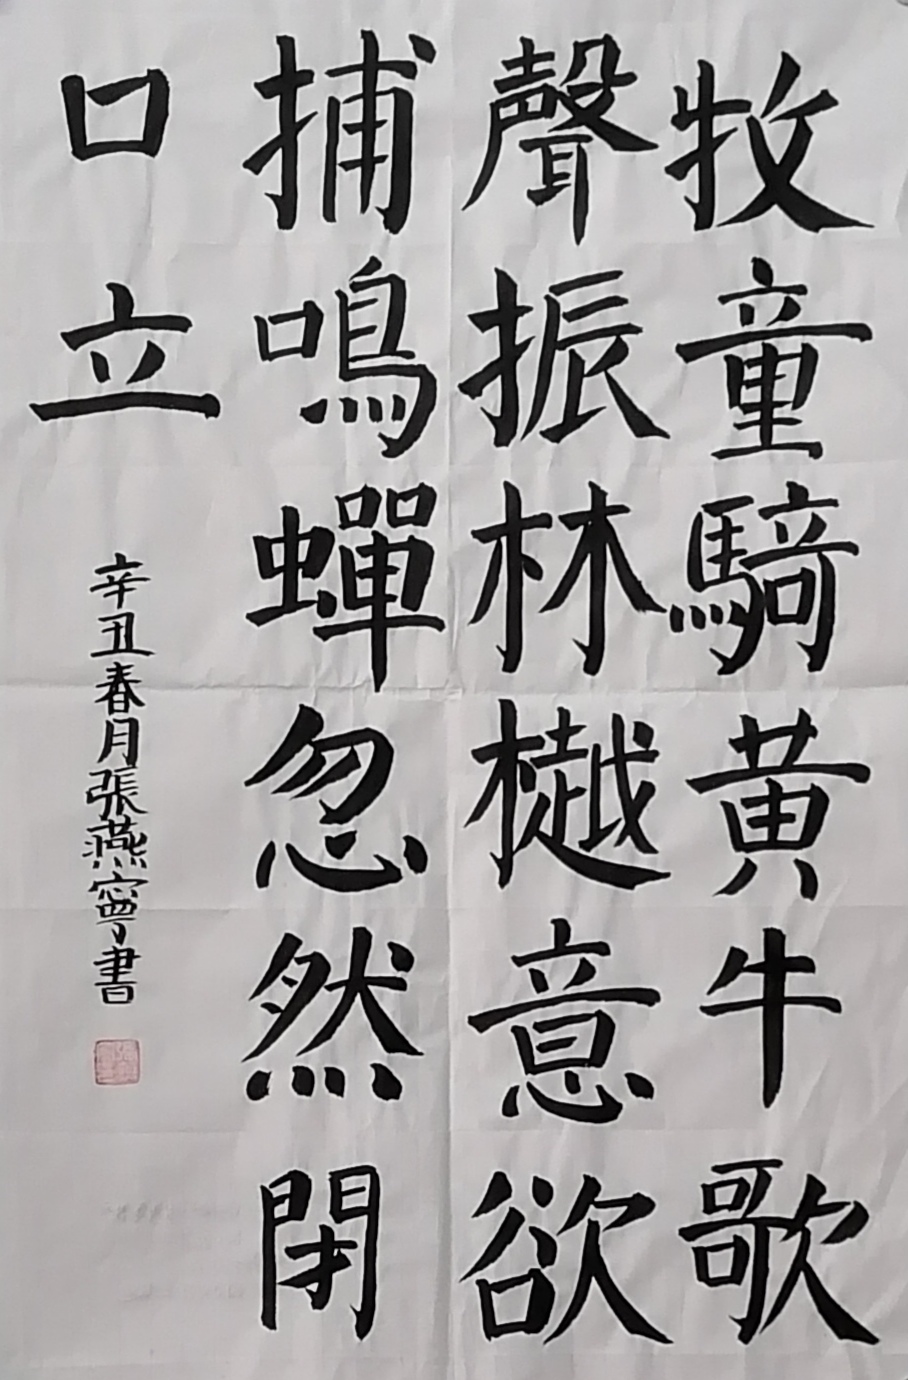 牧童騎黃牛歌
聲振林樾意欲
捕鳴蟬忽然閉
口立
辛丑春月張燕寧書